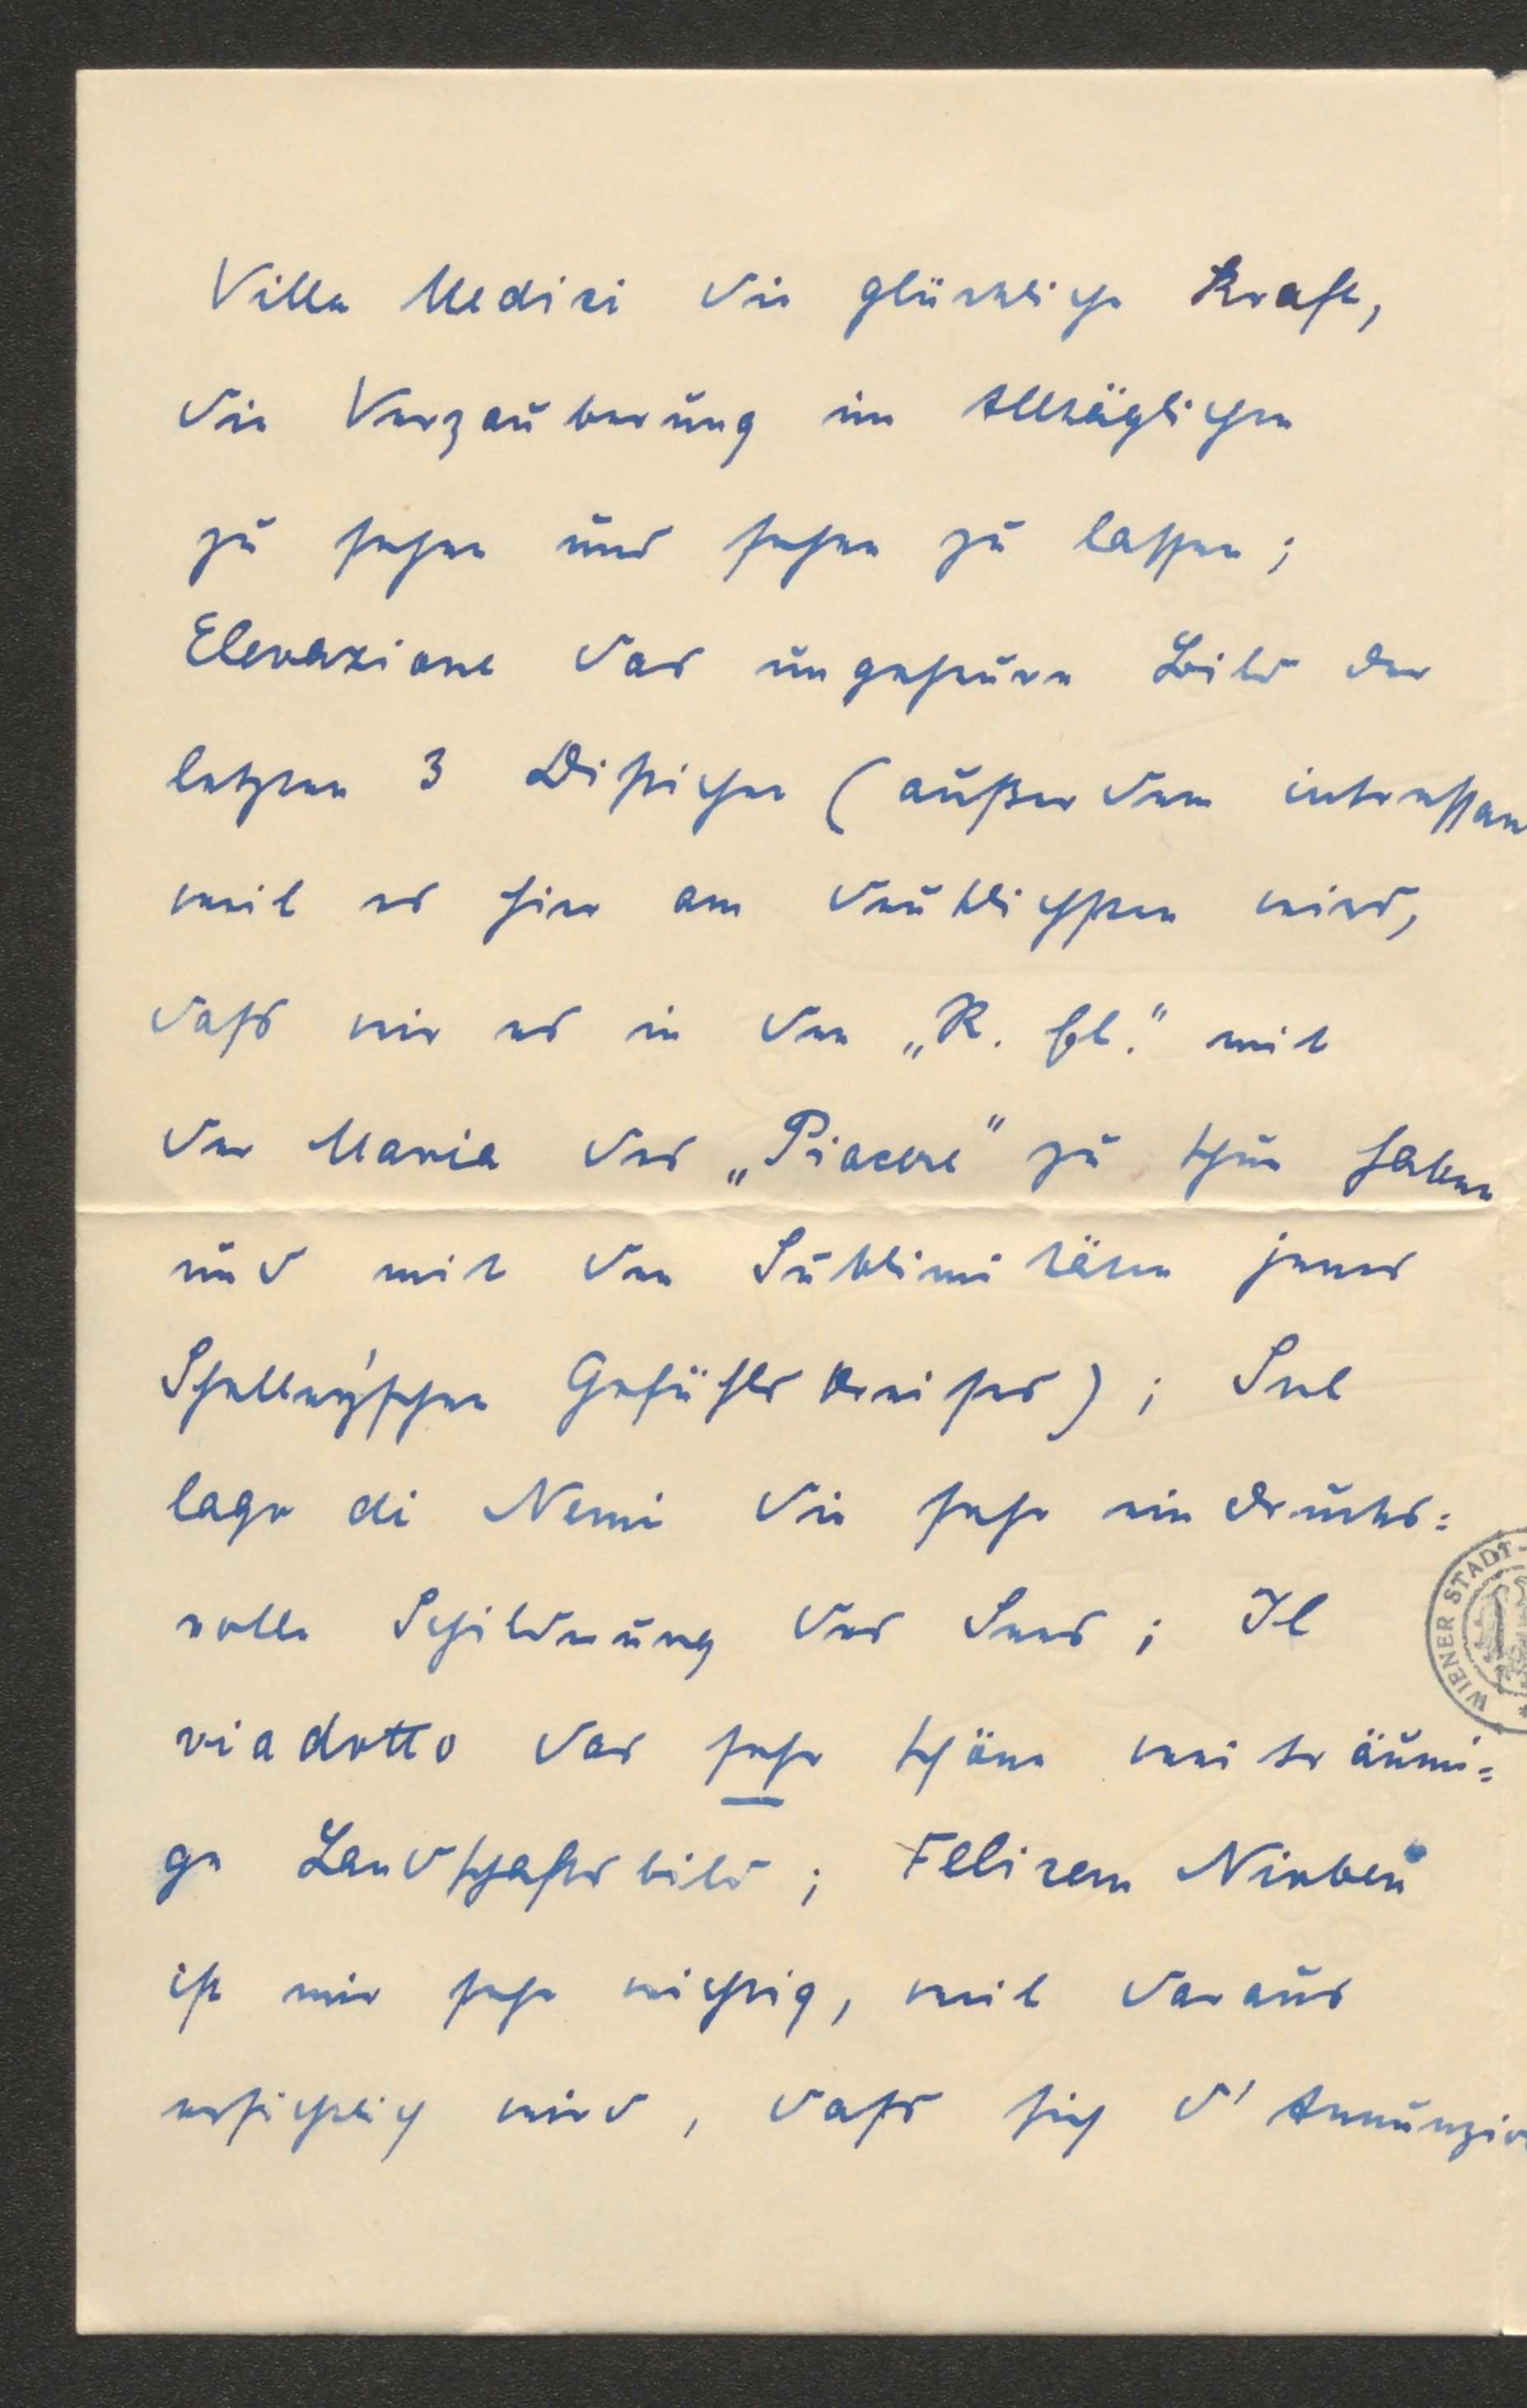 Villa Medici die glückliche Kraft,
die Verzauberung im Alltäglichen
zu sehen und sehen zu lassen;
Elevazione das ungeheure Bild der
letzten 3 Distichen (außerdem interessan
weil es hier am deutlichsten wird,
dass wir es in den „R. El." mit
der Maria des „Piacere" zu thun haben
und mit den Sublimitäten jenes
Shelley'schen Gefühlskreises); Sul
lago di Nemi die sehr eindrucks=
volle Schilderung des Sees; Il
viadotto das sehr schöne weiträumi=
ge Landschaftsbild; Felicem Nioben
ist mir sehr wichtig, weil daraus
ersichtlich wird, dass sich d'Annunzio
WIENER STADT-